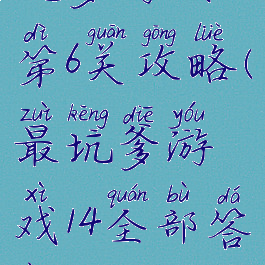 dì guān gōng lüè
第6关攻略(
zuì kēng diē yóu
最坑爹游
xì quán bù dá
戏14全部答